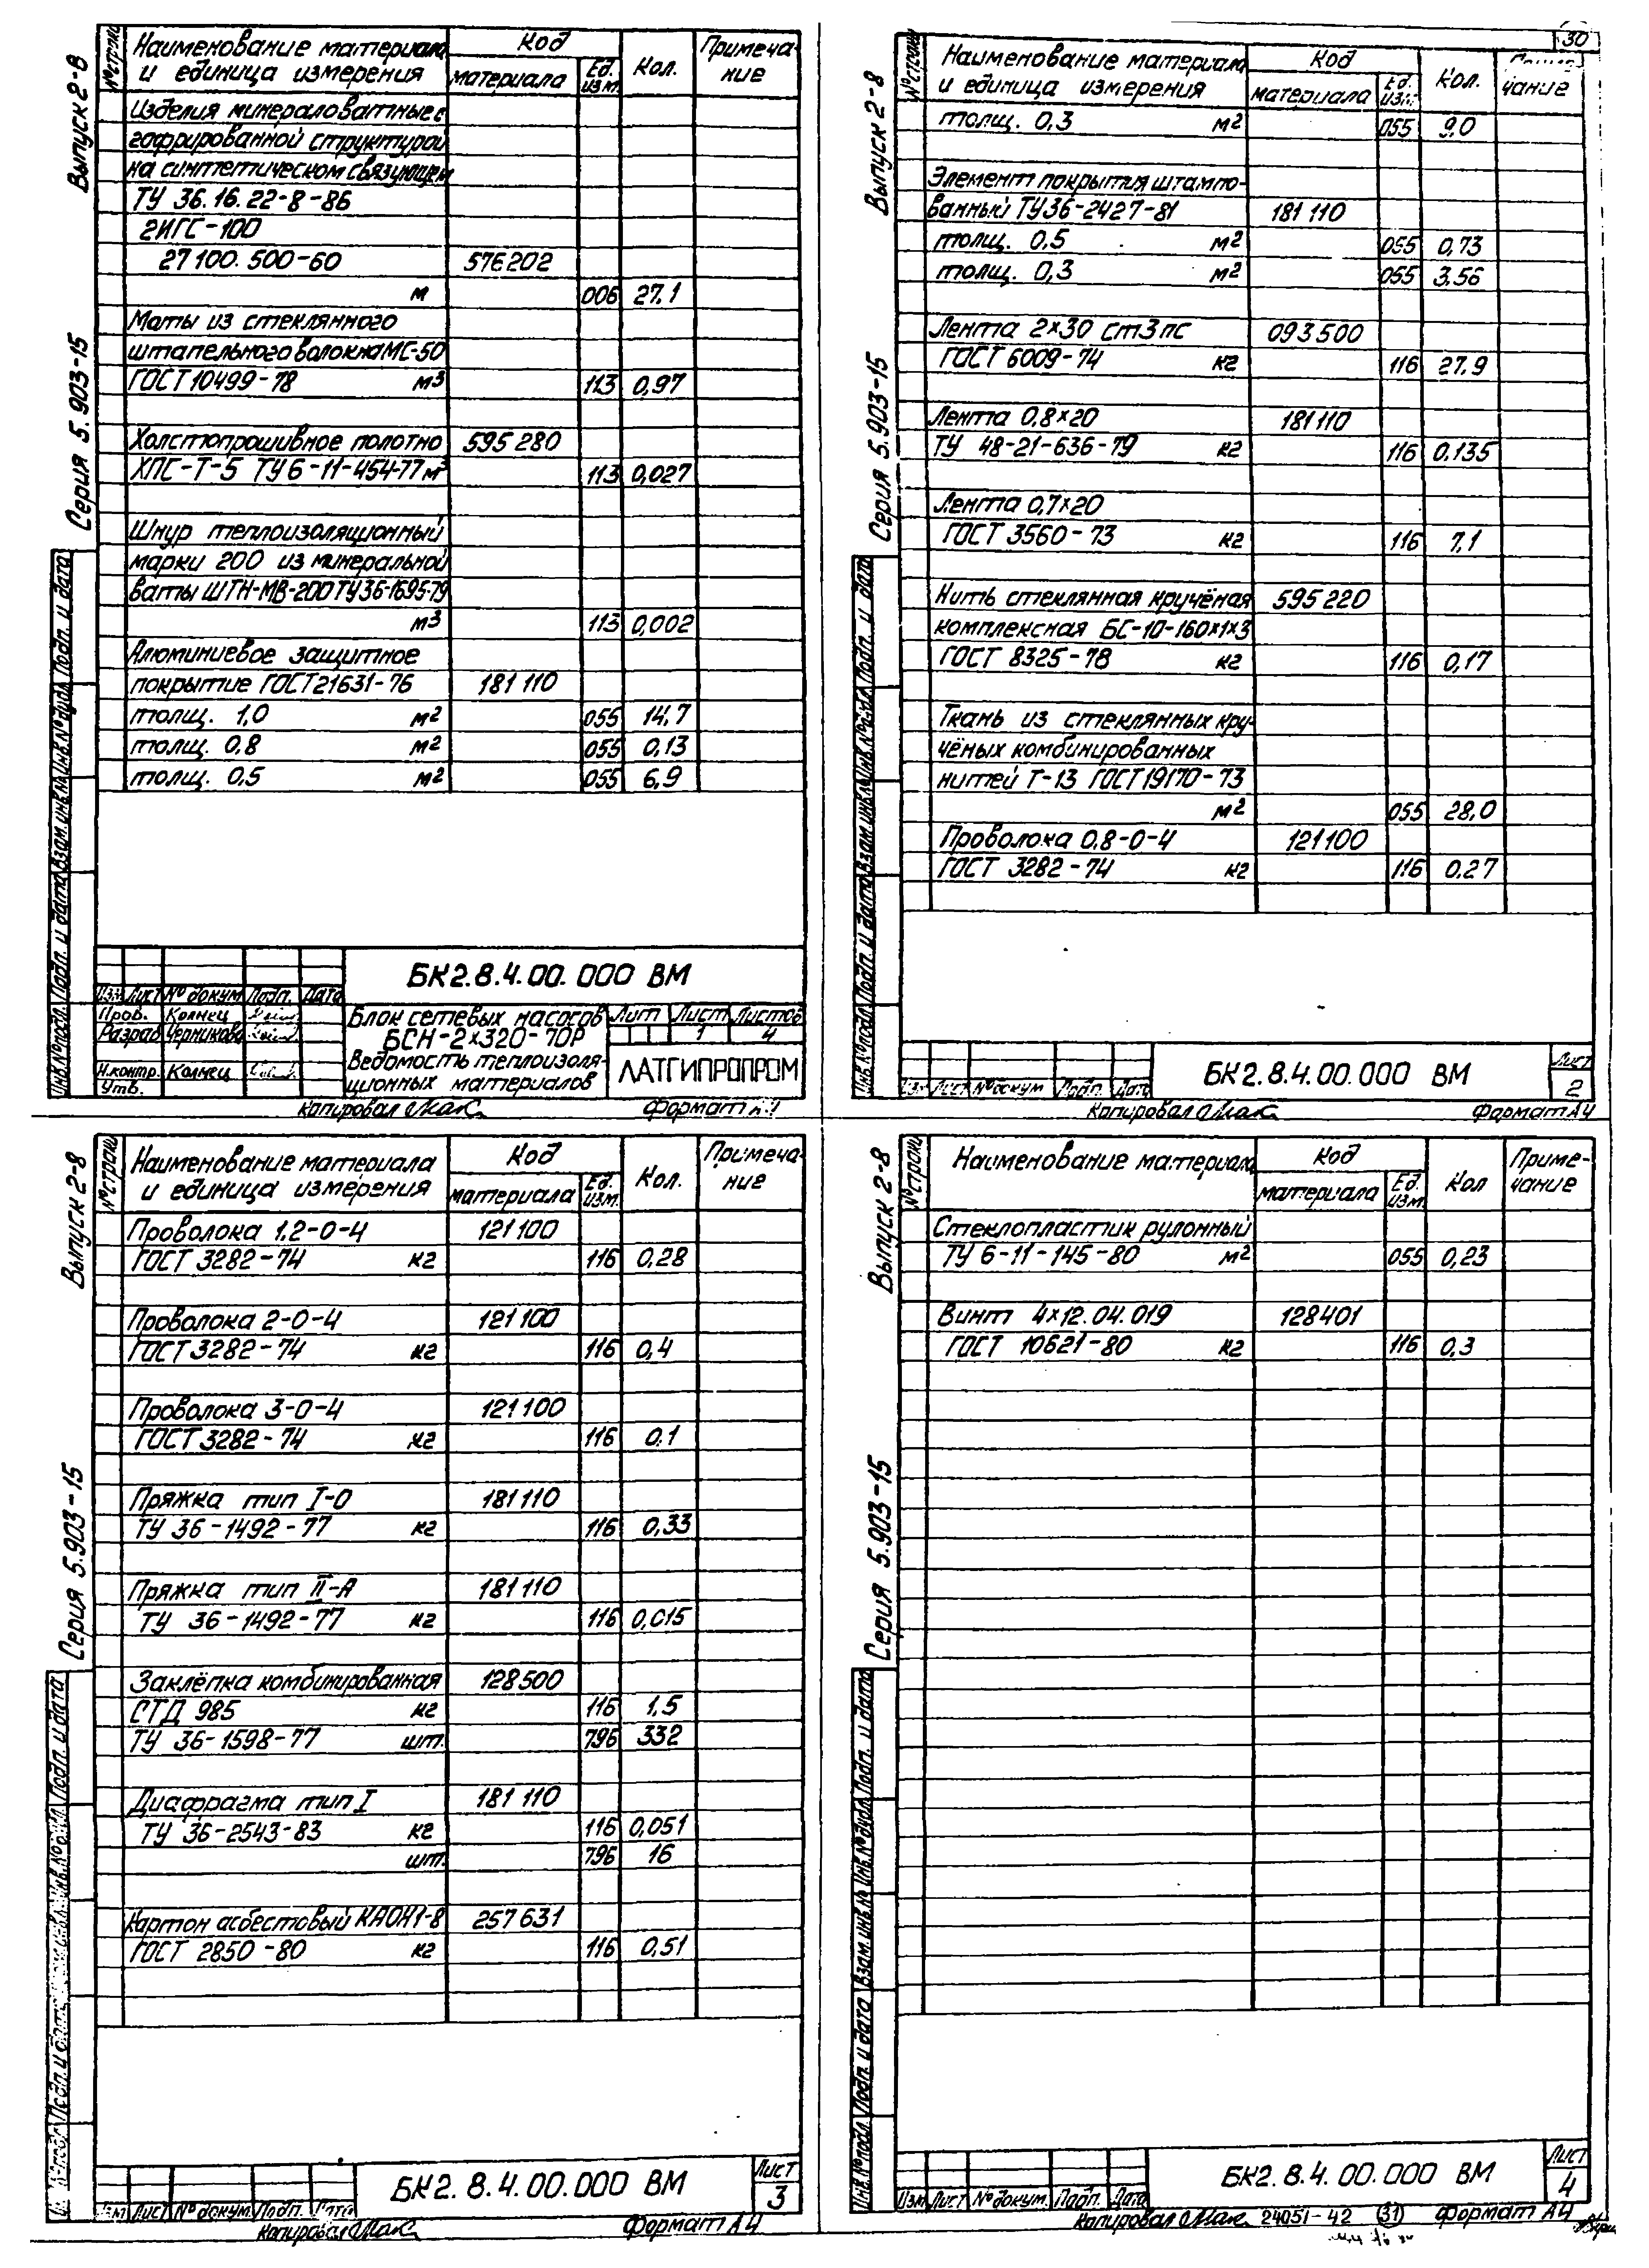 Выпуск 2-8
Серия 5.903-15
№ строки
Наименование материала
и единица измерения
Код
материала
Ед. изм.
Кол.
Примеча-
ние
Изделия минераловатные с
гофрированной структурой
на синтетическом связующем
ТУ 36.16.22-8-86
2ИГС-100
27100.500-60 576202
м 006 27,1
Маты из стеклянного
штапельного волокна МС-50
ГОСТ 10499-78 м³ 113 0,97
Холстопрошивное полотно 595280
ХПС-Т-5 ТУ6-11-454-77 м³ 113 0,027
Шнур теплоизоляционный
марки 200 из минеральной
ваты ШТН-МВ-200 ТУ36-1695-79
м³ 113 0,002
Алюминиевое защитное
покрытие ГОСТ 21631-76 181110
толщ. 1,0 м² 055 14,7
толщ. 0,8 м² 055 0,13
толщ. 0,5 м² 055 6,9
Инв.№подл. Подп. и дата Взам.инв.№ Инв.№дубл. Подп. и дата
БК2.8.4.00.000 ВМ
Изм. Лист № докум. Подп. Дата
Пров. Колнец
Разраб. Черникова
Н.контр. Колнец
Утв.
Блок сетевых насосов
БСН-2х320-70Р
Ведомость теплоизоля-
ционных материалов
Лит Лист Листов
1 4
ЛАТГИПРОПРОМ
Копировал Формат А4
30
Выпуск 2-8
Серия 5.903-15
№ строки
Наименование материала
и единица измерения
Код
материала
Ед. изм.
Кол.
чание
толщ. 0,3 м² 055 9,0
Элемент покрытия штампо-
ванный ТУ36-2427-81 181110
толщ. 0,5 м² 055 0,73
толщ. 0,3 м² 055 3,56
Лента 2×30 ст3пс 093500
ГОСТ 6009-74 кг 116 27,9
Лента 0,8×20 181110
ТУ 48-21-636-79 кг 116 0,135
Лента 0,7×20
ГОСТ 3560-73 кг 116 7,1
Нить стеклянная кручёная 595220
комплексная БС-10-160×1×3
ГОСТ 8325-78 кг 116 0,17
Ткань из стеклянных кру-
чёных комбинированных
нитей Т-13 ГОСТ 19170-73
м² 055 28,0
Проволока 0,8-0-4 121100
ГОСТ 3282-74 кг 116 0,27
Инв.№подл. Подп. и дата Взам.инв.№ Инв.№дубл. Подп. и дата
Изм Лист № докум Подп. Дата
БК2.8.4.00.000 ВМ
Лист
2
Копировал Формат А4
Выпуск 2-8
Серия 5.903-15
№ строки
Наименование материала
и единица измерения
Код
материала
Ед. изм.
Кол.
Примеча-
ние
Проволока 1,2-0-4 121100
ГОСТ 3282-74 кг 116 0,28
Проволока 2-0-4 121100
ГОСТ 3282-74 кг 116 0,4
Проволока 3-0-4 121100
ГОСТ 3282-74 кг 116 0,1
Пряжка тип I-0 181110
ТУ 36-1492-77 кг 116 0,33
Пряжка тип II-А 181110
ТУ 36-1492-77 кг 116 0,015
Заклёпка комбинированная 128500
СТД 985 кг 116 1,5
ТУ 36-1598-77 шт. 796 332
Диафрагма тип I 181110
ТУ 36-2543-83 кг 116 0,051
шт. 796 16
Картон асбестовый КАОН1-8 257631
ГОСТ 2850-80 кг 116 0,51
Подп. и дата
Изм Лист № докум. Подп. Дата
БК2.8.4.00.000 ВМ
Лист
3
Копировал Формат А4
Выпуск 2-8
Серия 5.903-15
№ строки
Наименование материала
Код
материала
Ед. изм.
Кол
Приме-
чание
Стеклопластик рулонный
ТУ 6-11-145-80 м² 055 0,23
Винт 4×12.04.019 128401
ГОСТ 10621-80 кг 116 0,3
Инв.№подл. Подп. и дата Взам.инв.№ Инв.№дубл. Подп. и дата
Изм Лист № докум. Подп. Дата
БК2.8.4.00.000 ВМ
Лист
4
Копировал 24051-42 31 Формат А4